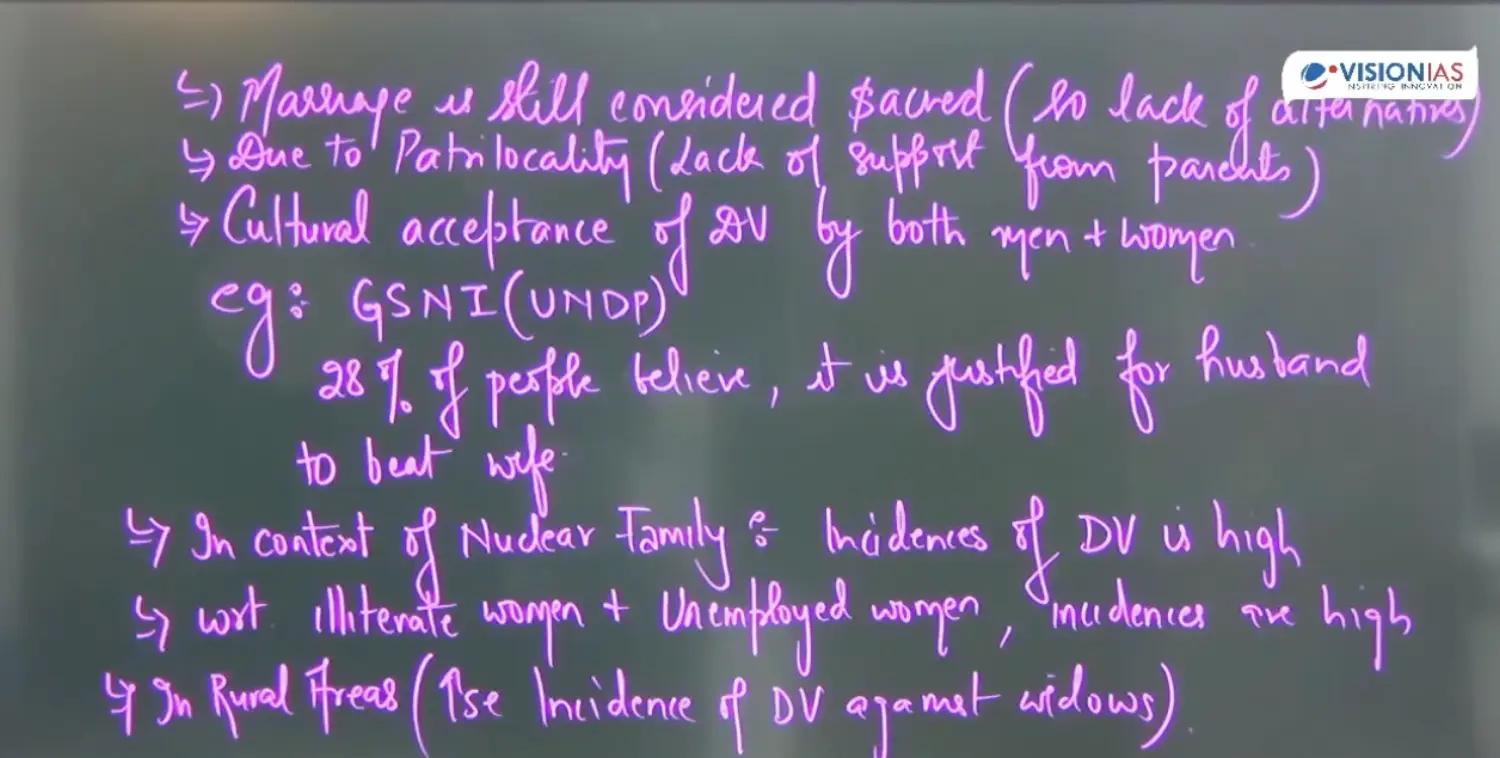 VISIONIAS
INSPIRING INNOVATION
↳ Marriage is still considered Sacred (so lack of alternatives)
↳ Due to Patrilocality (Lack of support from parents)
↳ Cultural acceptance of DV by both men + women
eg: GSNI (UNDP)
28% of people believe, it is justified for husband
to beat wife.
↳ In context of Nuclear Family :- Incidences of DV is high
↳ wrt illiterate women + Unemployed women, incidences are high
↳ In Rural Areas (↑se Incidence of DV against widows).